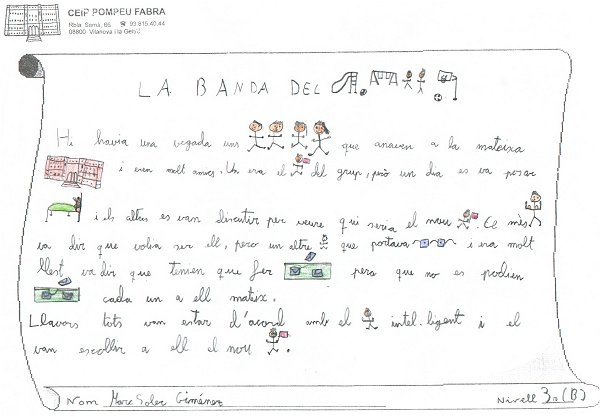 CEIP POMPEU FABRA
Rbla. Samà, 66 ☎ 93 815 40 44
08800 Vilanova i la Geltrú
LA BANDA DEL
Hi havia una vegada uns que anaven a la mateixa
i eren molt amics. Un era el del grup, però un dia es va posar
i els altres es van discutir per veure qui seria el nou . El més
va dir que volia ser ell, pero un altre que portava i era molt
llest va dir que tenien que fer pero que no es podien
cada un a ell mateix.
Llavors tots van estar d'acord amb el intel·ligent i el
van escollir a ell el nou .
Nom Marc Soler Giménez Nivell 3r (B)